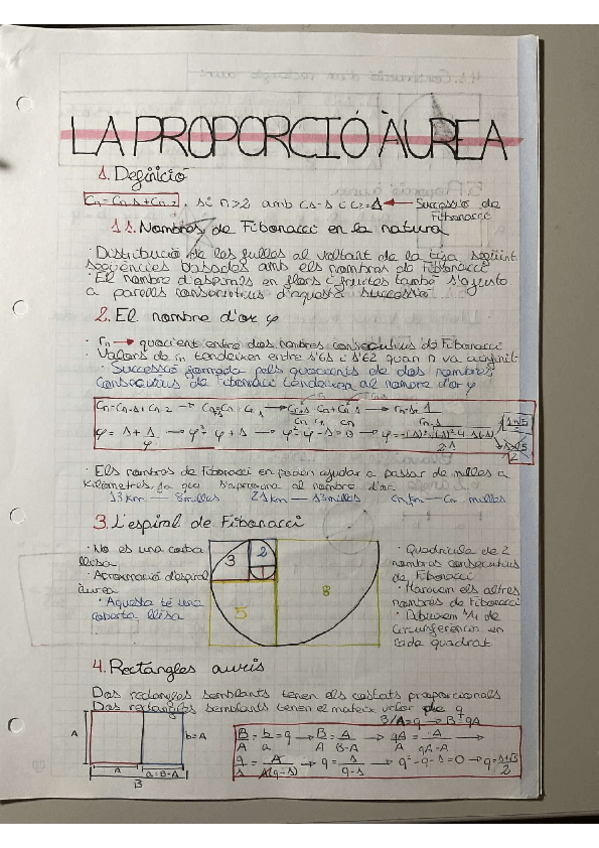 LA PROPORCIÓ ÀUREA
1. Definició
Cn = Cn-1 + Cn-2, si n>2 amb C1=1 i C2=1 ← Successió de
Fibonacci
1.1. Nombres de Fibonacci en la natura
· Distribució de les fulles al voltant de la tija, següint
seqüències basades amb els nombres de Fibonacci
· El nombre d'espirals en flors i fruites també s'ajusta
a parells consecutius d'aquesta successió.
2. El nombre d'or φ
· rn → quocient entre dos nombres consecutius de Fibonacci
· Valors de rn tendeixen entre 1'61 i 1'62 quan n va a infinit
· Successió formada pels quocients de dos nombres
consecutius de Fibonacci tendeix al nombre d'or φ
φ = 1 + 1/φ → φ² = φ + 1 → φ² - φ - 1 = 0 →
· Els nombres de Fibonacci en poden ajudar a passar de milles a
kilòmetres, ja que s'aproxima al nombre d'or.
13km — 8milles 21km — 13milles milles
3. L'espiral de Fibonacci
· No és una corba
llisa
· Aproximació d'espiral
àurea
· Aquesta té una
coberta llisa
3
2
1
5
8
· Quadrícula de 2
nombres consecutius
de Fibonacci
· Marquem els altres
nombres de Fibonacci
· Dibuixem 1/4 de
circumferència en
cada quadrat
4. Rectangles auris
Dos rectangles semblants tenen els costats proporcionals
Dos rectangles semblants tenen el mateix valor de q
B/A = q → B = qA
A
b=A
a
a=B-A
B
B/A = b/a = q → B/A = A/B-A → qA/A = A/qA-A →
q/1 = A/A(q-1) → q = 1/q-1 → q² - q - 1 = 0 → q = 1+√5/2